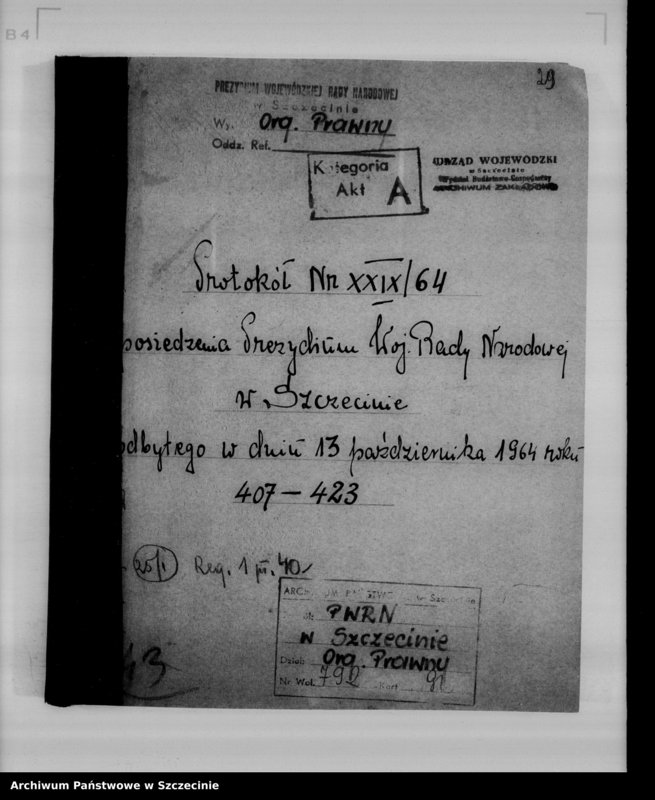 B4
29
PREZYDIUM WOJEWÓDZKIEJ RADY NARODOWEJ
w Szczecinie
Wy. Org. Prawny
Oddz. Ref.
Kategoria
Akt A
URZĄD WOJEWÓDZKI
w Szczecinie
ARCHIWUM ZAKŁADOWE
Protokół Nr XXIX/64
posiedzenia Prezydium Woj. Rady Narodowej
w Szczecinie
odbytego w dniu 13 października 1964 roku
407 – 423
25/1 Reg. 1 p. 40
ARCHIWUM PAŃSTWOWE w Szczecinie
PWRN
w Szczecinie
Dział Org. Prawny
Nr Wol. 792 Kart
43
Archiwum Państwowe w Szczecinie